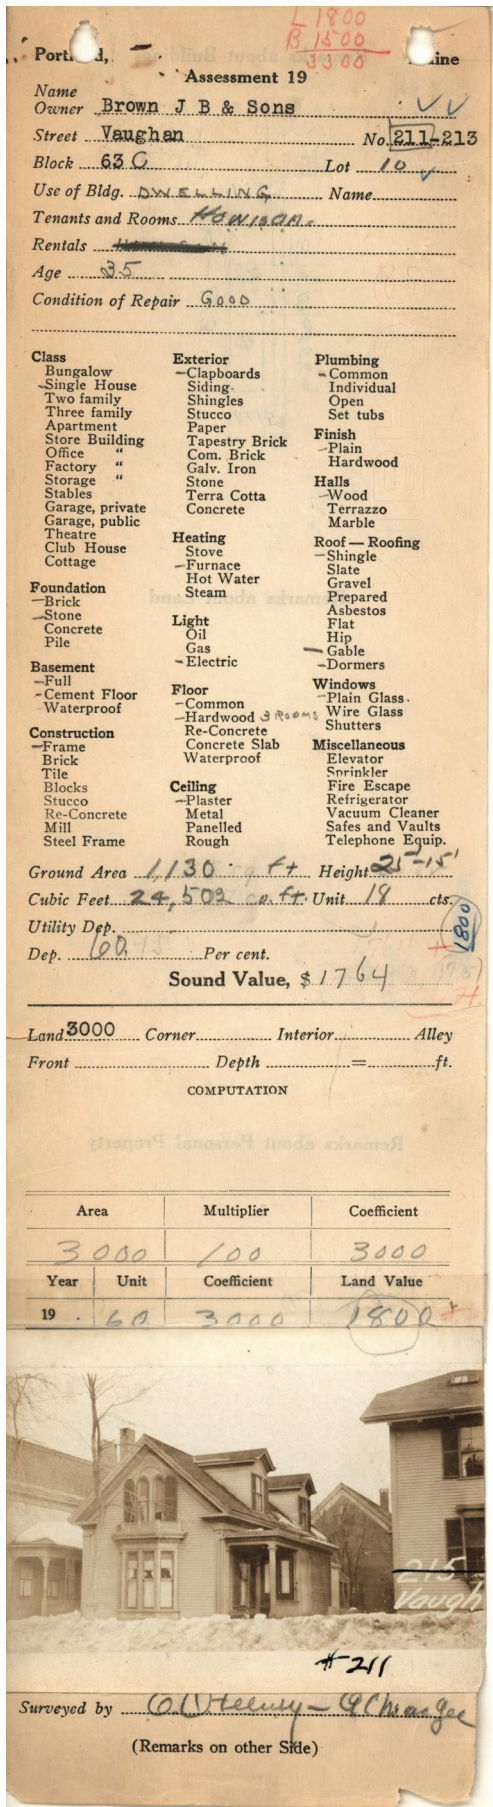 L 1800
B 1500
3300
Portland, Maine
Assessment 19
Name
Owner Brown J B & Sons
Street Vaughan No. 211-213
Block 63 C Lot 10
Use of Bldg. DWELLING Name
Tenants and Rooms Howison.
Rentals
Age 35
Condition of Repair GOOD
Class
Bungalow
Single House
Two family
Three family
Apartment
Store Building
Office "
Factory "
Storage "
Stables
Garage, private
Garage, public
Theatre
Club House
Cottage
Foundation
Brick
Stone
Concrete
Pile
Basement
Full
Cement Floor
Waterproof
Construction
Frame
Brick
Tile
Blocks
Stucco
Re-Concrete
Mill
Steel Frame
Exterior
Clapboards
Siding
Shingles
Stucco
Paper
Tapestry Brick
Com. Brick
Galv. Iron
Stone
Terra Cotta
Concrete
Heating
Stove
Furnace
Hot Water
Steam
Light
Oil
Gas
Electric
Floor
Common
Hardwood 3 ROOMS
Re-Concrete
Concrete Slab
Waterproof
Ceiling
Plaster
Metal
Panelled
Rough
Plumbing
Common
Individual
Open
Set tubs
Finish
Plain
Hardwood
Halls
Wood
Terrazzo
Marble
Roof — Roofing
Shingle
Slate
Gravel
Prepared
Asbestos
Flat
Hip
Gable
Dormers
Windows
Plain Glass
Wire Glass
Shutters
Miscellaneous
Elevator
Sprinkler
Fire Escape
Refrigerator
Vacuum Cleaner
Safes and Vaults
Telephone Equip.
Ground Area 1,130 ft Height 25'-15'
Cubic Feet 24,502 cu.ft. Unit 18 cts.
Utility Dep.
1800
Dep. 60 Per cent.
Sound Value, $ 1764
Land 3000 Corner Interior Alley
Front Depth = ft.
COMPUTATION
Area Multiplier Coefficient
3000 100 3000
Year Unit Coefficient Land Value
19 60 3000 1800
215
Vaugh
#211
Surveyed by
(Remarks on other Side)